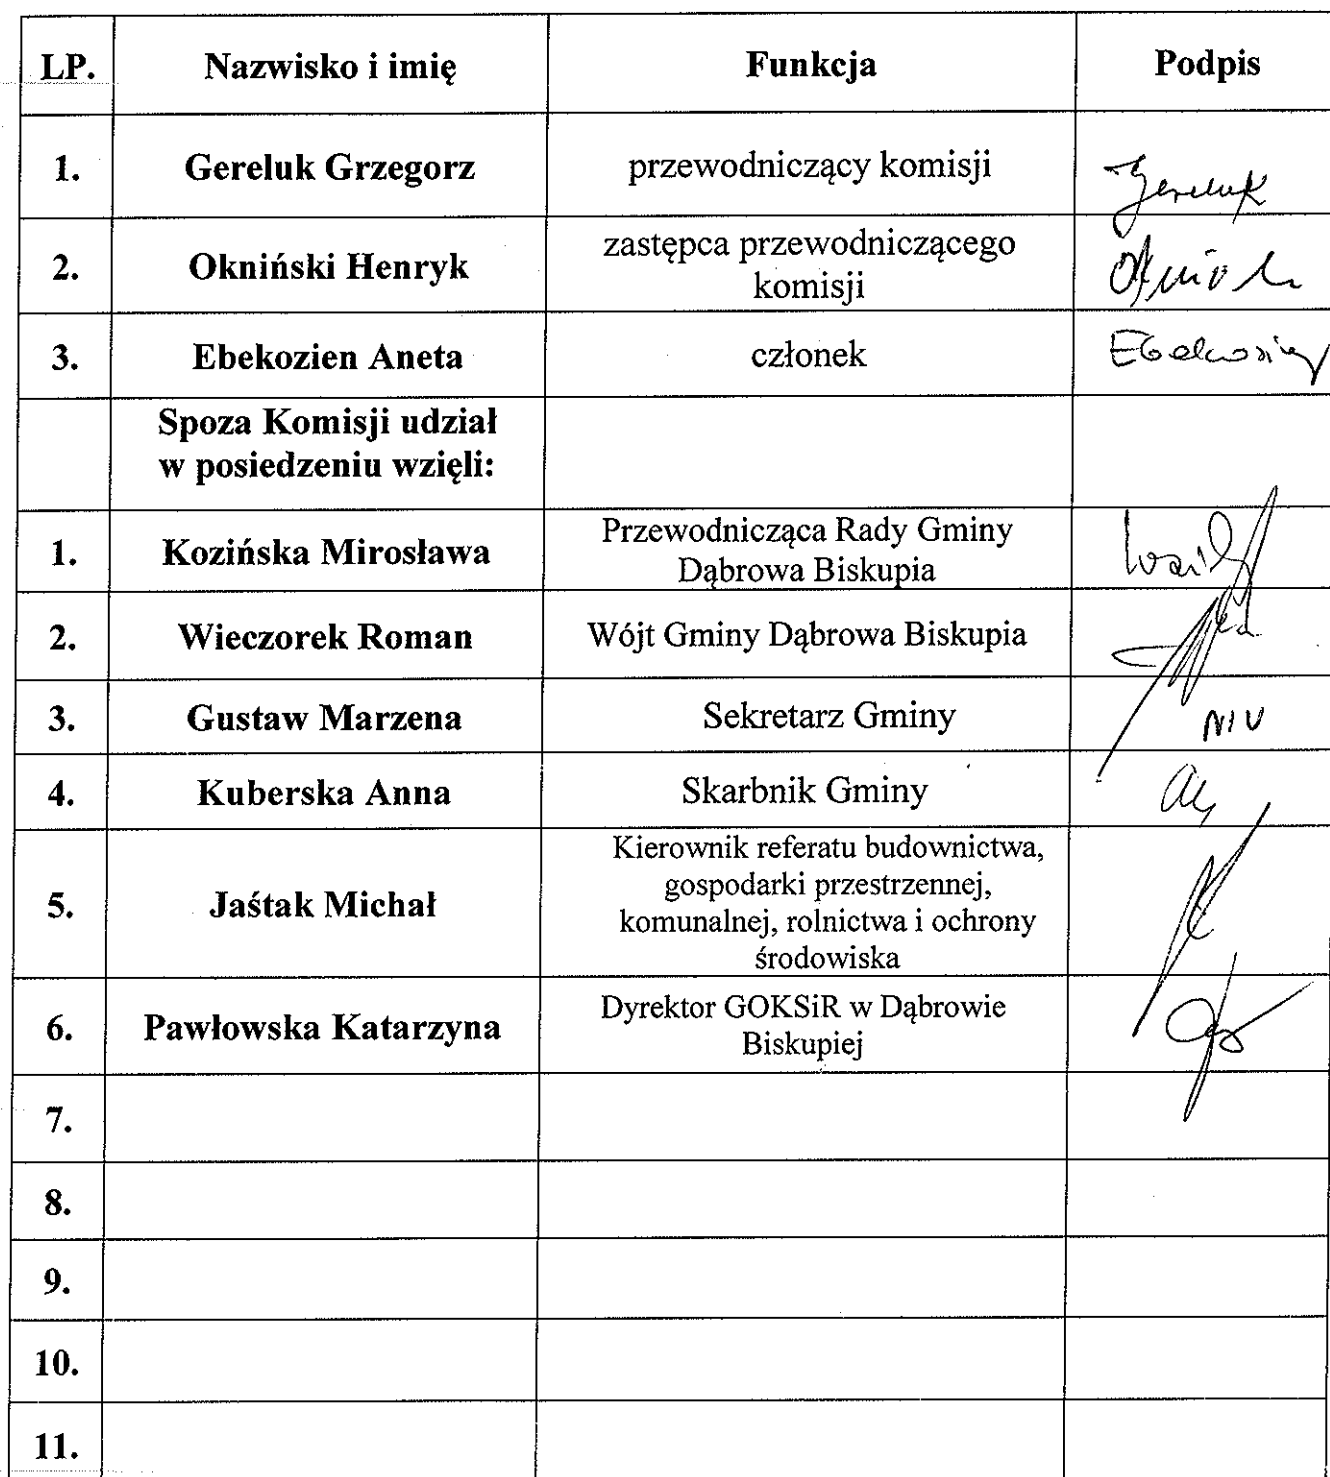 LP. Nazwisko i imię Funkcja Podpis
1. Gereluk Grzegorz przewodniczący komisji Gereluk
2. Okniński Henryk zastępca przewodniczącego
komisji
3. Ebekozien Aneta członek
Spoza Komisji udział
w posiedzeniu wzięli:
1. Kozińska Mirosława Przewodnicząca Rady Gminy
Dąbrowa Biskupia
2. Wieczorek Roman Wójt Gminy Dąbrowa Biskupia
3. Gustaw Marzena Sekretarz Gminy
4. Kuberska Anna Skarbnik Gminy
5. Jaśtak Michał Kierownik referatu budownictwa,
gospodarki przestrzennej,
komunalnej, rolnictwa i ochrony
środowiska
6. Pawłowska Katarzyna Dyrektor GOKSiR w Dąbrowie
Biskupiej
7.
8.
9.
10.
11.